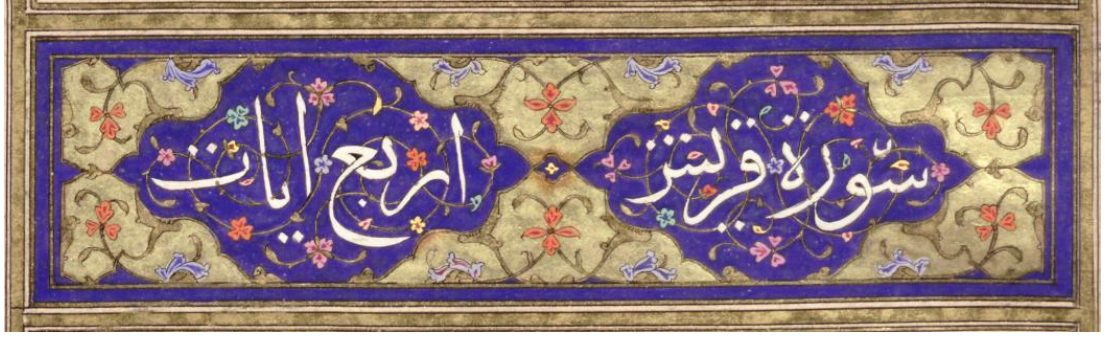 سورة قريش اربع ايات